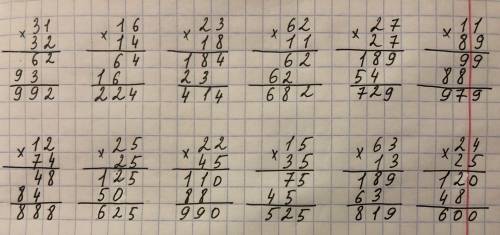 31 16 23 62 27 11
× × × × × ×
32 14 18 11 27 89
62 64 184 62 189 99
93 16 23 62 54 88
992 224 414 682 729 979
12 25 22 15 63 24
× × × × × ×
74 25 45 35 13 25
48 125 110 75 189 120
84 50 88 45 63 48
888 625 990 525 819 600